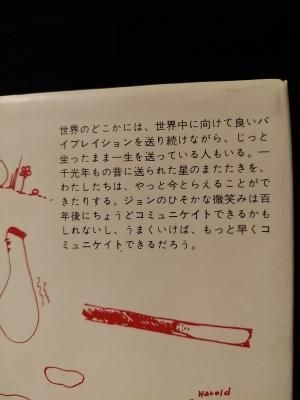 世界のどこかには、世界中に向けて良いバ
イブレイションを送り続けながら、じっと
坐ったまま一生を送っている人もいる。一
千光年もの昔に送られた星のまたたきを、
わたしたちは、やっと今とらえることがで
きたりする。ジョンのひそかな微笑みは百
年後にちょうどコミュニケイトできるかも
しれないし、うまくいけば、もっと早くコ
ミュニケイトできるだろう。
Harold